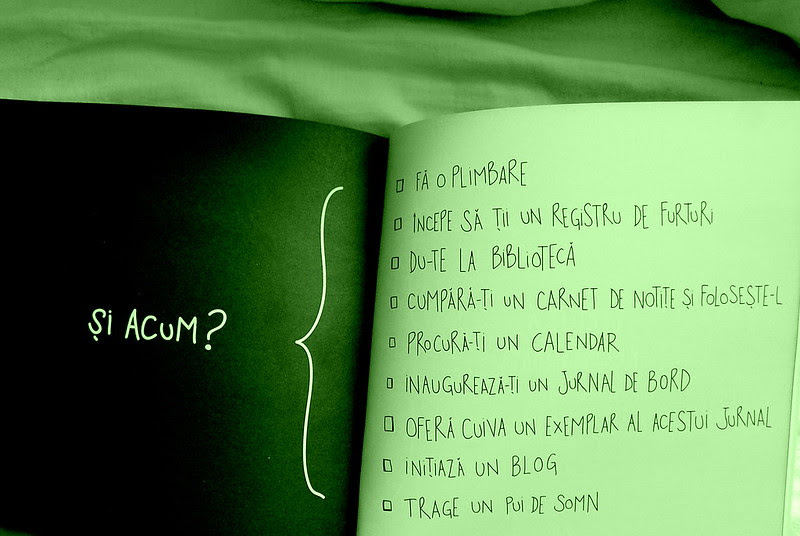 ȘI ACUM?
FĂ O PLIMBARE
ÎNCEPE SĂ ȚII UN REGISTRU DE FURTURI
DU-TE LA BIBLIOTECĂ
CUMPĂRĂ-ȚI UN CARNET DE NOTIȚE ȘI FOLOSEȘTE-L
PROCURĂ-ȚI UN CALENDAR
INAUGUREAZĂ-ȚI UN JURNAL DE BORD
OFERĂ CUIVA UN EXEMPLAR AL ACESTUI JURNAL
INIȚIAZĂ UN BLOG
TRAGE UN PUI DE SOMN